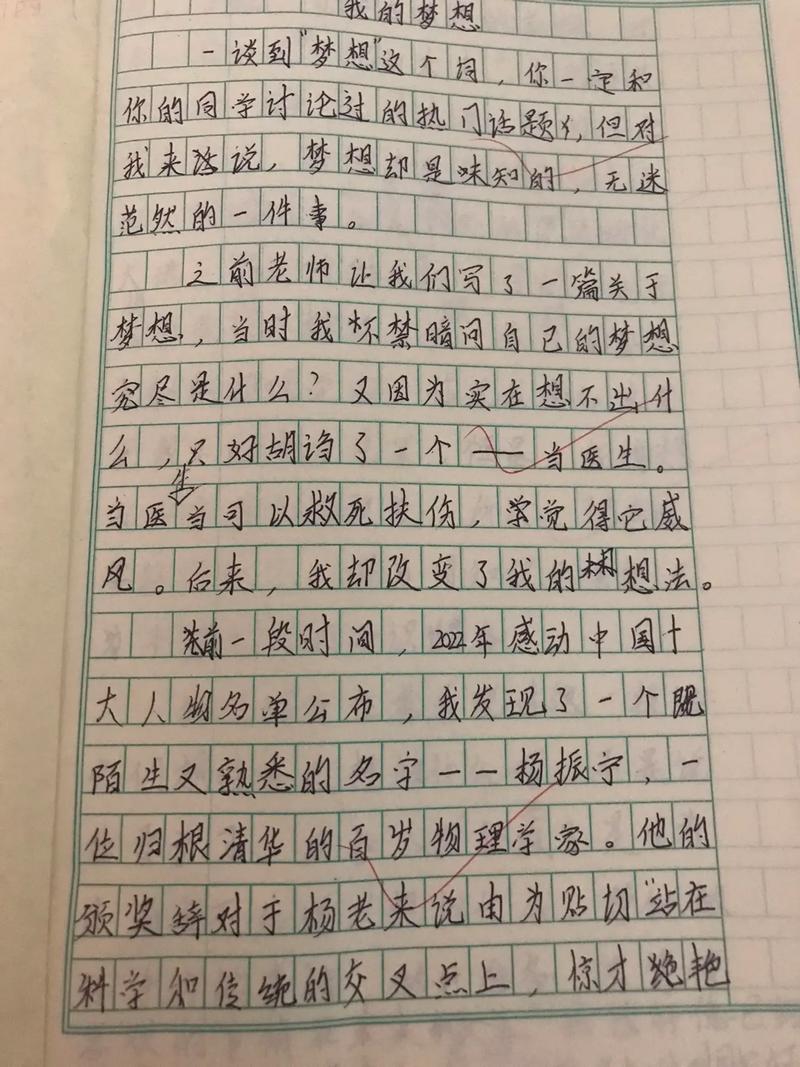 我的梦想
一谈到"梦想"这个词，你一定和
你的同学讨论过的热门话题，但对
我来说，梦想却是味知的，无迷
范然的一件事。
之前老师让我们写了一篇关于
梦想，当时我不禁暗问自己的梦想
究尽是什么？又因为实在想不出什
么，只好胡诌了一个——当医生。
生
当医当可以救死扶伤，学觉得它威
风。后来，我却改变了我的想法。
前一段时间，2022年感动中国十
大人物名单公布，我发现了一个既
陌生又熟悉的名字——杨振宁，一
位归根清华的百岁物理学家。他的
颁奖辞对于杨老来说由为贴切"站在
科学和传统的交叉点上，惊才绝艳